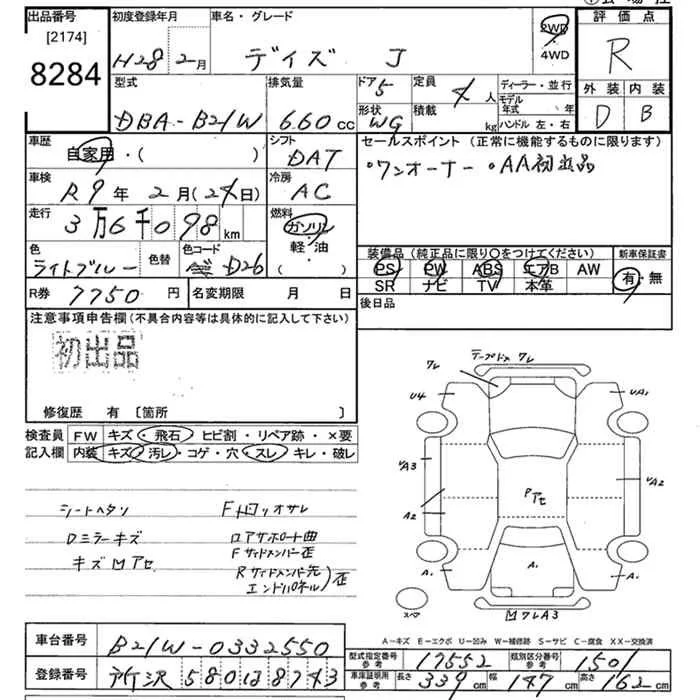 出品番号 初度登録年月 車名・グレード 評価点
[2174]
8284 H28 2月 デイズ J 2WD・4WD R
型式 排気量 ドア 5 定員 4人 ディーラー・並行
外装 内装
DBA-B21W 6.60cc 形状 WG 積載 kg モデル年式 年
ハンドル 左・右 D B
車歴 自家用・( ) シフト DAT セールスポイント(正常に機能するものに限ります)
・ワンオーナー ・AA初出品
車検 R9年 2月(24日) 冷房 AC
走行 3万6千098km 燃料 ガソリン
軽・油
( )
色 ライトブルー 色替 色コード D26
装備品(純正品に限り○をつけてください) 新車保証書
PS PW ABS エアB AW 有・無
SR ナビ TV 本革
R券 7750円 名変期限 月 日 後日品
注意事項申告欄(不具合内容等は具体的に記入して下さい)
初出品
修復歴 有 〔箇所 〕
検査員 FW キズ・飛石・ヒビ割・リペア跡・×要
記入欄 内装 キズ・汚レ・コゲ・穴・スレ・キレ・破レ
シートヘタリ
Dミラーキズ
キズMアセ
ロアサポート曲
Fサイドメンバー歪
Rサイドメンバー先
エンドパネル 歪
フレ
フレ
U4
UA1
UA3
UA2
A2
Pアセ
A1
A1
A1
スペア
MフレA3
A-キズ E-エクボ U-凹み W-補修跡 S-サビ C-腐食 XX-交換済
車台番号 B21W-0332550
型式指定番号 参考 17552 類別区分番号 参考 1501
登録番号 所沢 580 は 8743
車庫証明用 参考 長さ 339cm 幅 147cm 高さ 162cm